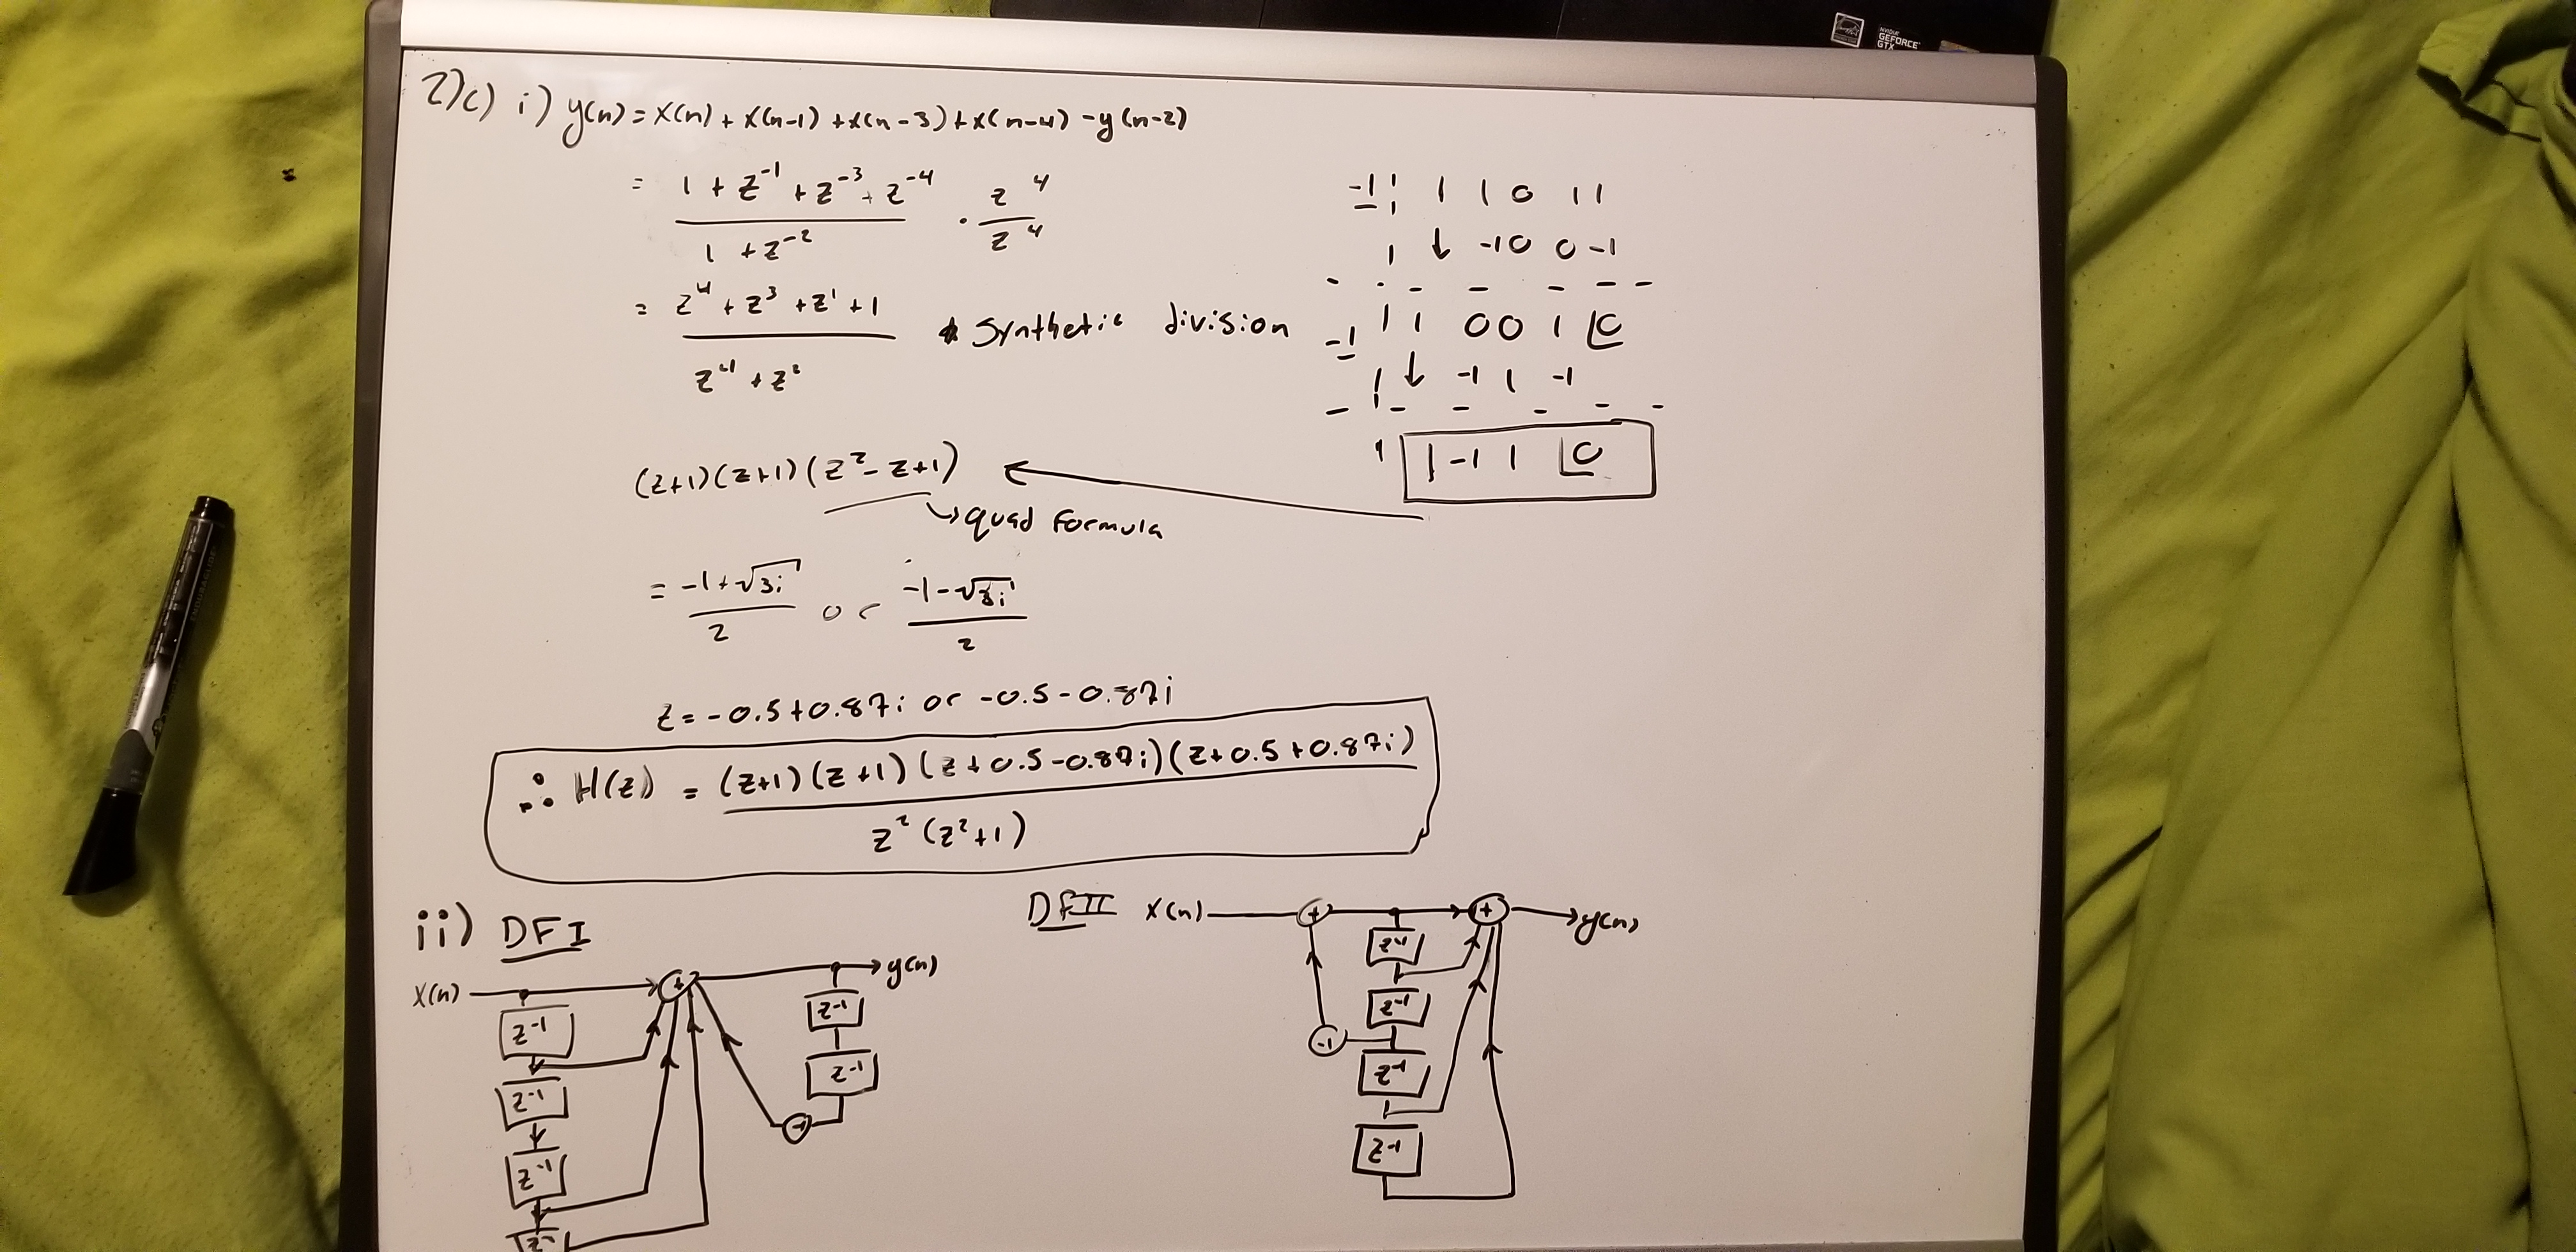 NVIDIA
GEFORCE
GTX
2)c) i) y(n) = x(n) + x(n-1) + x(n-3) + x(n-4) - y(n-2)
= 1 + z⁻¹ + z⁻³ + z⁻⁴ / 1 + z⁻² · z⁴ / z⁴
= z⁴ + z³ + z¹ + 1 / z⁴ + z² * Synthetic division
-1 | 1 1 0 1 1
↓ -1 0 0 -1
-1 | 1 0 0 1 0
↓ -1 1 -1
1 -1 1 0
(z+1)(z+1)(z²-z+1)
↳ quad formula
= -1+√3i / 2 or -1-√3i / 2
z = -0.5+0.87i or -0.5-0.87i
∴ H(z) = (z+1)(z+1)(z+0.5-0.87i)(z+0.5+0.87i) / z²(z²+1)
ii) DFI
x(n) + y(n)
z⁻¹
z⁻¹
z⁻¹
z⁻¹
z⁻¹
z⁻¹
-1
DFII x(n) + + y(n)
z⁻¹
z⁻¹
-1
z⁻¹
z⁻¹